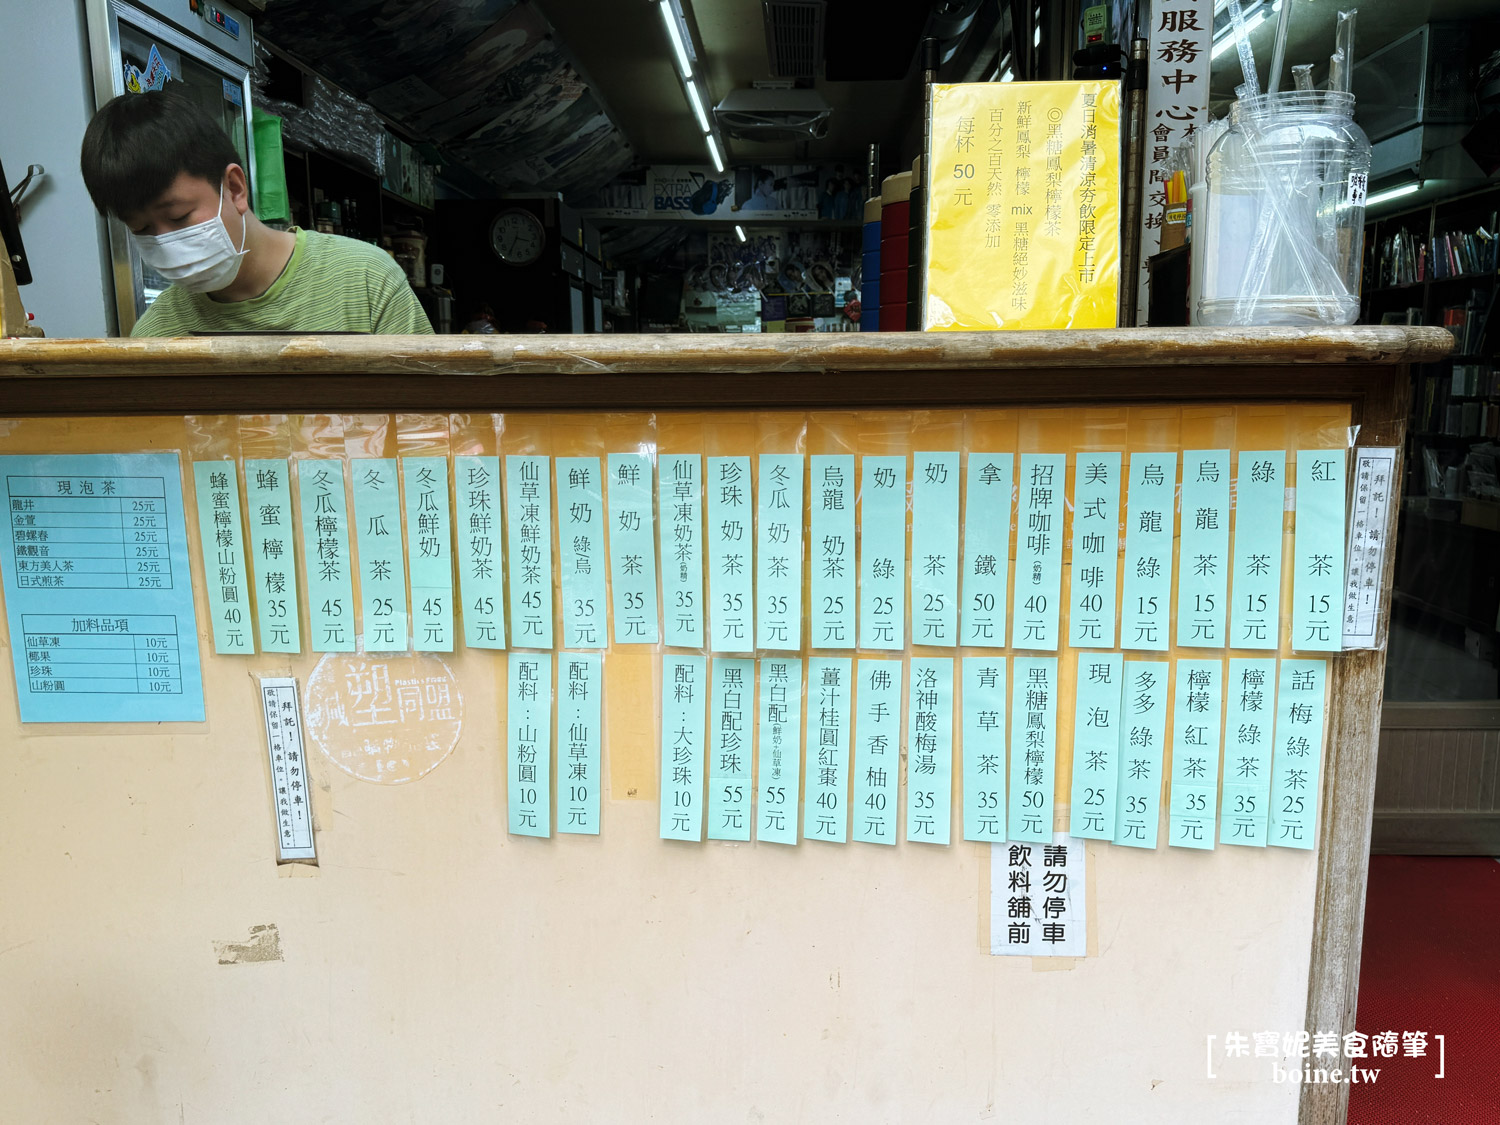 服務中心
會員開交換
EXTRA
BASS
夏日消暑清涼夯飲限定上市
◎黑糖鳳梨檸檬茶
新鮮鳳梨 檸檬 mix 黑糖絕妙滋味
百分之百天然 零添加
每杯 50 元
拜託！請勿停車！
敬請保留一格車位，讓我做生意。
紅茶 15元
綠茶 15元
烏龍茶 15元
烏龍綠 15元
美式咖啡 40元
招牌咖啡(奶精) 40元
拿鐵 50元
奶茶 25元
奶綠 25元
烏龍奶茶 25元
冬瓜奶茶 35元
珍珠奶茶 35元
仙草凍奶茶(奶精) 35元
鮮奶茶 35元
鮮奶綠/烏 35元
仙草凍鮮奶茶 45元
珍珠鮮奶茶 45元
冬瓜鮮奶 45元
冬瓜茶 25元
冬瓜檸檬茶 45元
蜂蜜檸檬 35元
蜂蜜檸檬山粉圓 40元
話梅綠茶 25元
檸檬綠茶 35元
檸檬紅茶 35元
多多綠茶 35元
現泡茶 25元
黑糖鳳梨檸檬 50元
青草茶 35元
洛神酸梅湯 35元
佛手香柚 40元
薑汁桂圓紅棗 40元
黑白配(鮮奶+仙草凍) 55元
黑白配珍珠 55元
配料：大珍珠 10元
配料：仙草凍 10元
配料：山粉圓 10元
現泡茶
龍井 25元
金萱 25元
碧螺春 25元
鐵觀音 25元
東方美人茶 25元
日式煎茶 25元
加料品項
仙草凍 10元
椰果 10元
珍珠 10元
山粉圓 10元
減塑同盟
拜託！請勿停車！
敬請保留一格車位，讓我做生意。
請勿停車
飲料舖前
朱寶妮美食隨筆
boine.tw